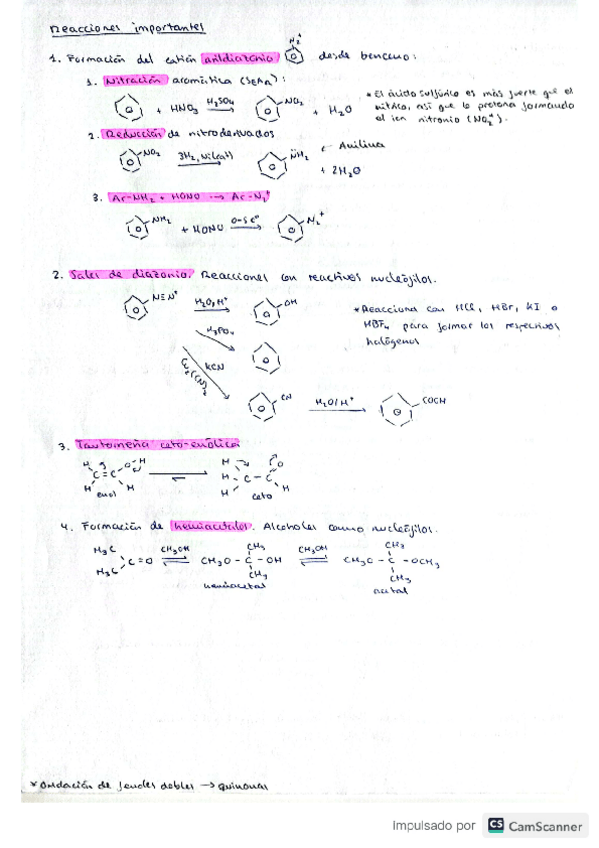 Reacciones importantes
1. Formación del catión arildiazonio N₂⁺ desde benceno:
1. Nitración aromática (SEAr):
+ HNO₃ H₂SO₄ NO₂ + H₂O
* El ácido sulfúrico es más fuerte que el
nítrico, así que lo protona formando
el ion nitronio (NO₂⁺).
2. Reducción de nitroderivados
NO₂ 3H₂, Ni(cat) NH₂ ← Anilina
+ 2H₂O
3. Ar-NH₂ + HONO → Ar-N₂⁺
NH₂ + HONO 0-5 Cº N₂⁺
2. Sales de diazonio. Reacciones con reactivos nucleófilos.
N≡N⁺ H₂O, H⁺ OH
* Reacciona con HCl, HBr, KI o
HBF₄ para formar los respectivos
halógenos
H₃PO₂
KCN
Cu₂(CN)₂
CN H₂O/H⁺ COOH
3. Tautomería ceto-enólica
H O-H H O
C=C H - C - C
H H H H
enol ceto
4. Formación de hemiacetales. Alcoholes como nucleófilos.
H₃C CH₃OH CH₃ CH₃OH CH₃
C=O CH₃O - C - OH CH₃O - C - OCH₃
H₃C CH₃ CH₃
hemiacetal acetal
* Oxidación de fenoles dobles → quinonas
Impulsado por CS CamScanner